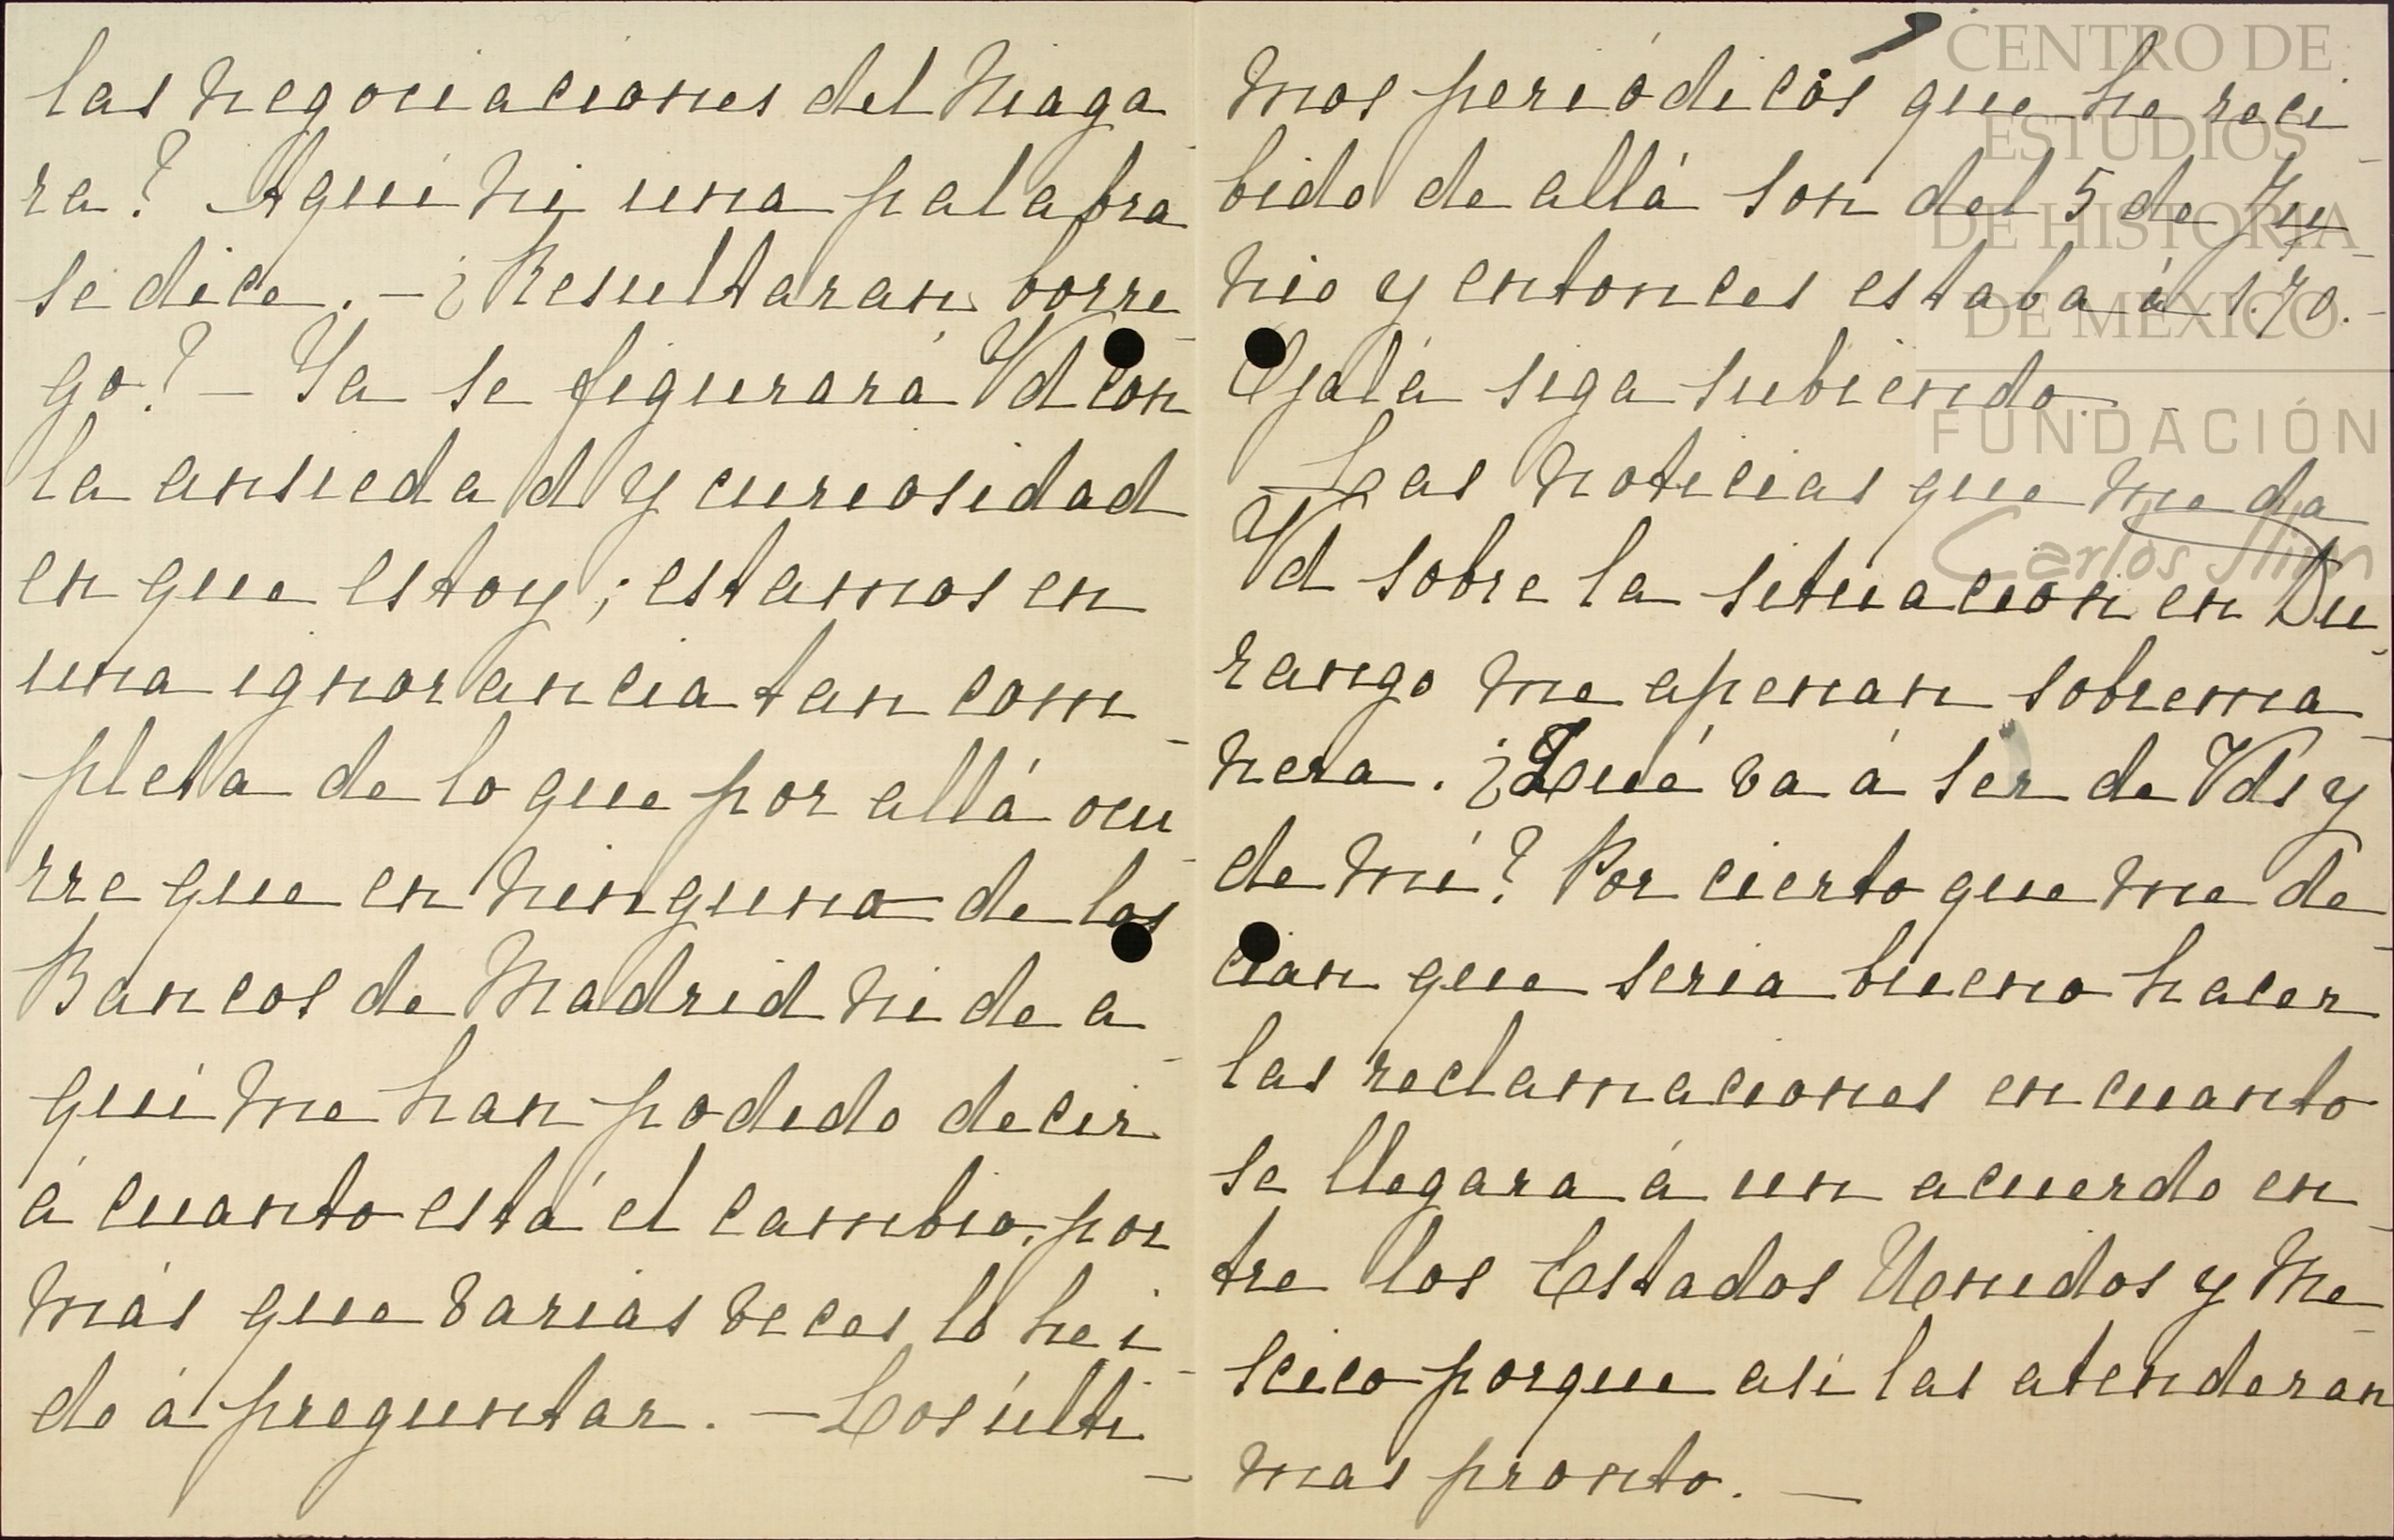 las negociaciones del Niaga-
ra? Aquí ni una palabra
se dice. — ¿Resultaran borre-
go? — Ya se figurará Vd con
la ansiedad y curiosidad
en que estoy; estamos en
una ignorancia tan com-
pleta de lo que por allá ocu-
rre que en ninguno de los
Bancos de Madrid ni de a-
quí me han podido decir
á cuanto está el cambio, por
más que varias veces lo he i-
do á preguntar. — Los últi-
mos periódicos que he reci-
bido de allá son del 5 de Ju-
nio y entonces estaba á 170.-
Ojalá siga subiendo.
— Las noticias que me da
Vd sobre la situación en Du-
rango me apenan sobrema-
nera. ¿Qué va á ser de Vds y
de mí? Por cierto que me de-
cian que seria bueno hacer
las reclamaciones en cuanto
se llegara á un acuerdo en-
tre los Estados Unidos y Me-
scico porque asi las atenderan
mas pronto. —
CENTRO DE
ESTUDIOS
DE HISTORIA
DE MÉXICO
FUNDACIÓN
Carlos Slim